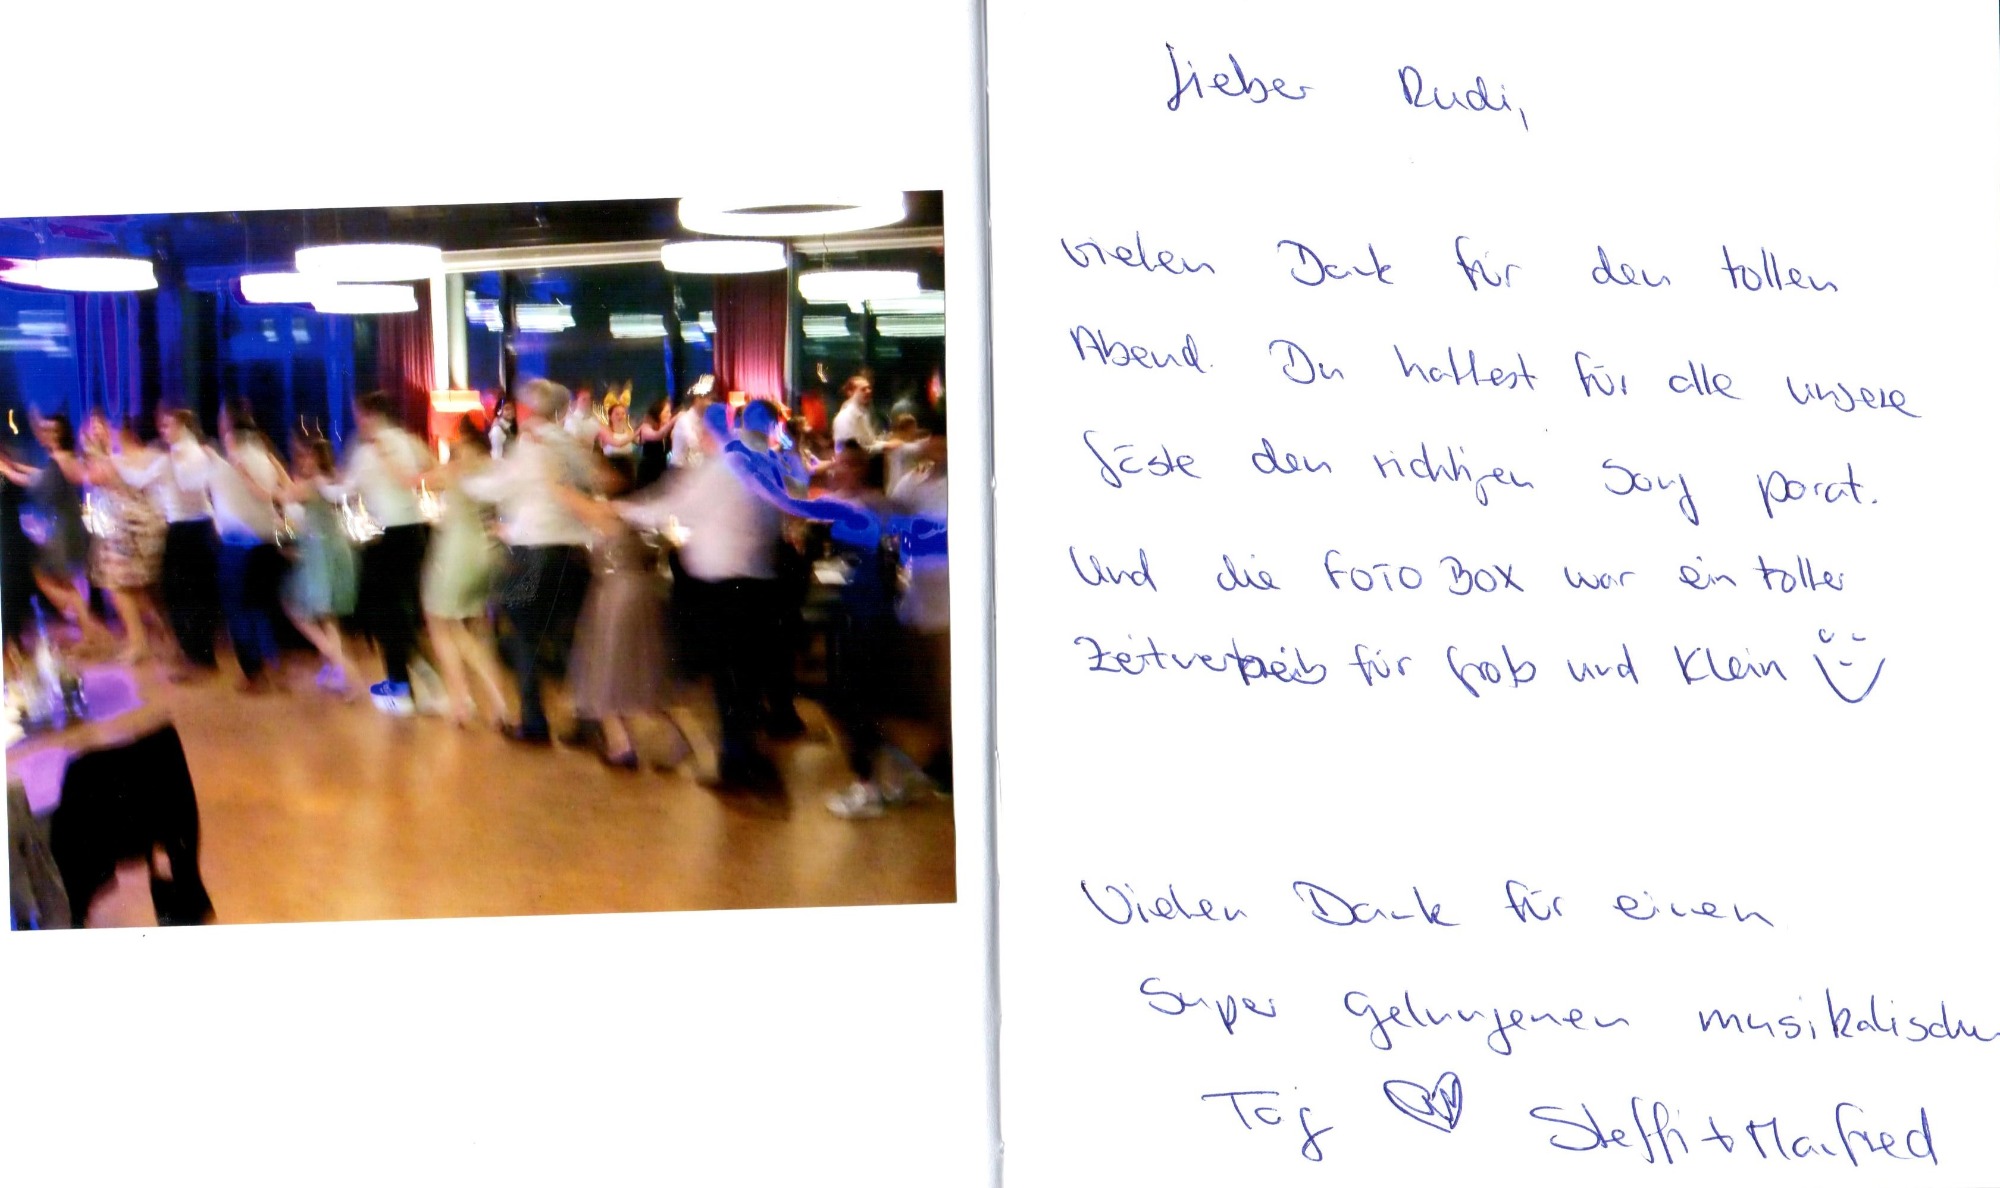 Lieber Rudi,
vielen Dank für den tollen
Abend. Du hattest für alle unsere
Gäste den richtigen Song parat.
Und die FOTO BOX war ein toller
Zeitvertreib für groß und Klein
Vielen Dank für einen
Super gelungenen musikalischen
Tag Steffi + Manfred